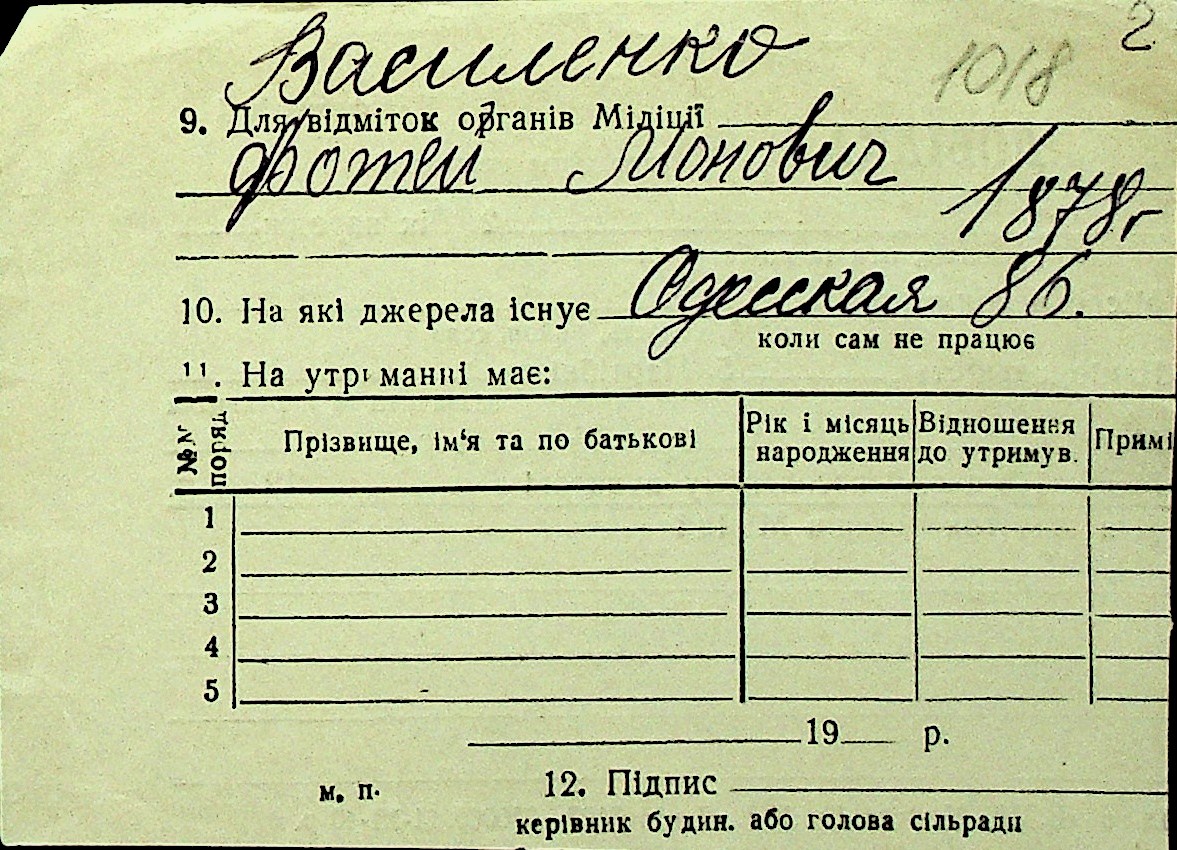 Василенко 1018 2
9. Для відміток органів Міліції
Фотей Ионович 1878г
10. На які джерела існує Одесская 86.
коли сам не працює
11. На утриманні має:
№№ поряд. Прізвище, ім‘я та по батькові Рік і місяць народження Відношення до утримув. Примі
1
2
3
4
5
19 р.
м. п. 12. Підпис
керівник будин. або голова сільради